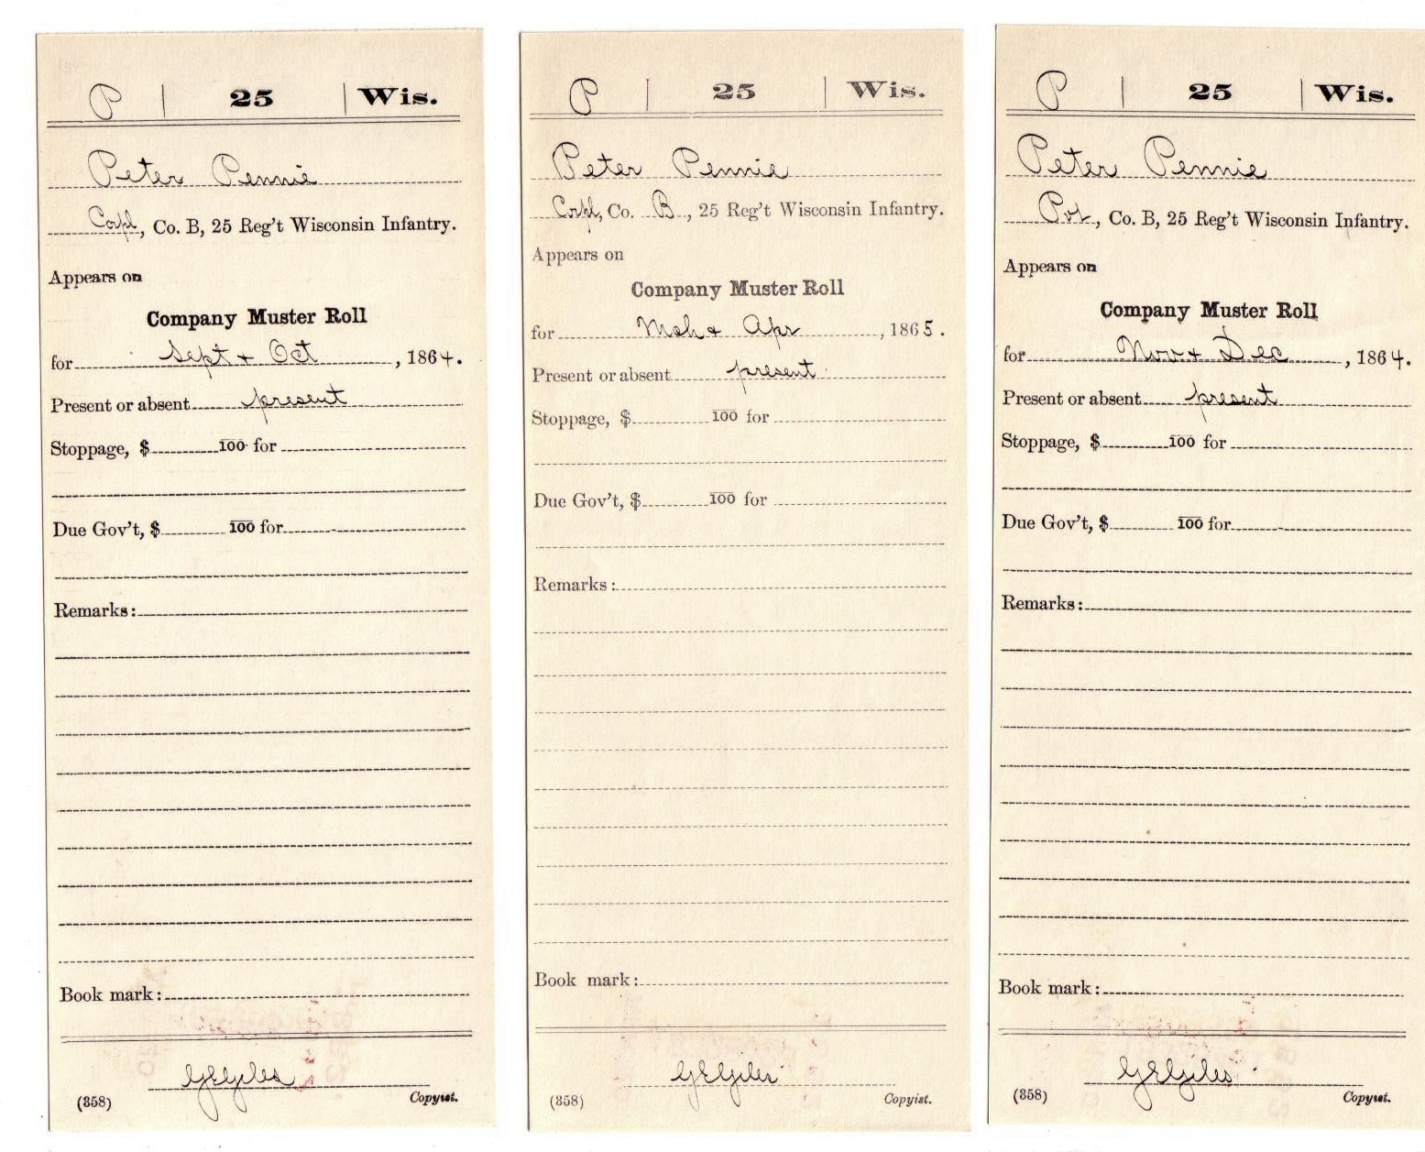 P | 25 | Wis.
Peter Pennie
Corpl, Co. B, 25 Reg't Wisconsin Infantry.
Appears on
Company Muster Roll
for Sept + Oct, 1864.
Present or absent present
Stoppage, $ 100 for
Due Gov't, $ 100 for
Remarks:
Book mark:
G E Giles
(358) Copyist.
P | 25 | Wis.
Peter Pennie
Corpl, Co. B, 25 Reg't Wisconsin Infantry.
Appears on
Company Muster Roll
for Mch + Apr, 1865.
Present or absent present
Stoppage, $ 100 for
Due Gov't, $ 100 for
Remarks:
Book mark:
G E Giles
(358) Copyist.
P | 25 | Wis.
Peter Pennie
Pvt, Co. B, 25 Reg't Wisconsin Infantry.
Appears on
Company Muster Roll
for Nov + Dec, 1864.
Present or absent present
Stoppage, $ 100 for
Due Gov't, $ 100 for
Remarks:
Book mark:
G E Giles
(358) Copyist.